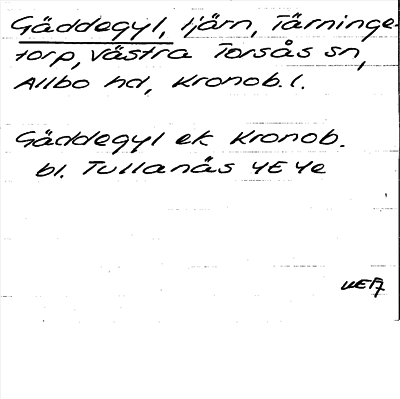 Gäddegyl, tjärn, Tärninge-
torp, Västra Torsås sn,
Allbo hd, Kronob. l.
Gäddegyl ek Kronob.
bl. Tullanäs 4E 4e